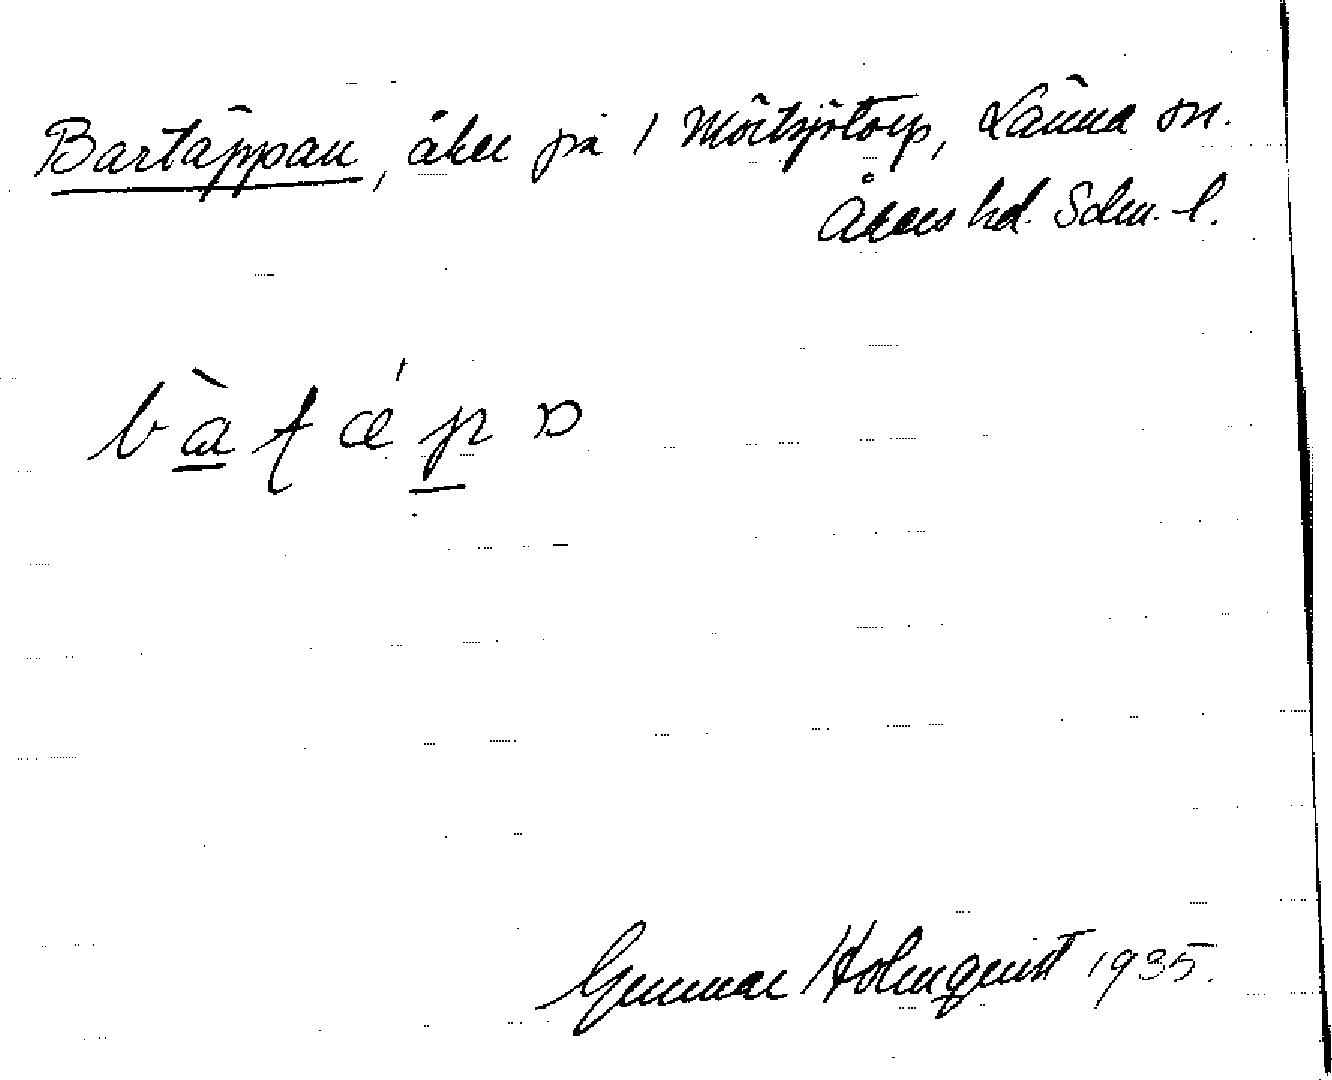 Bartäppan, åker på 1 Mörtsjötorp, Länna sn.
Åkers hd. Sdm. l.
bàtǽp
Gunnar Holmquist 1935.